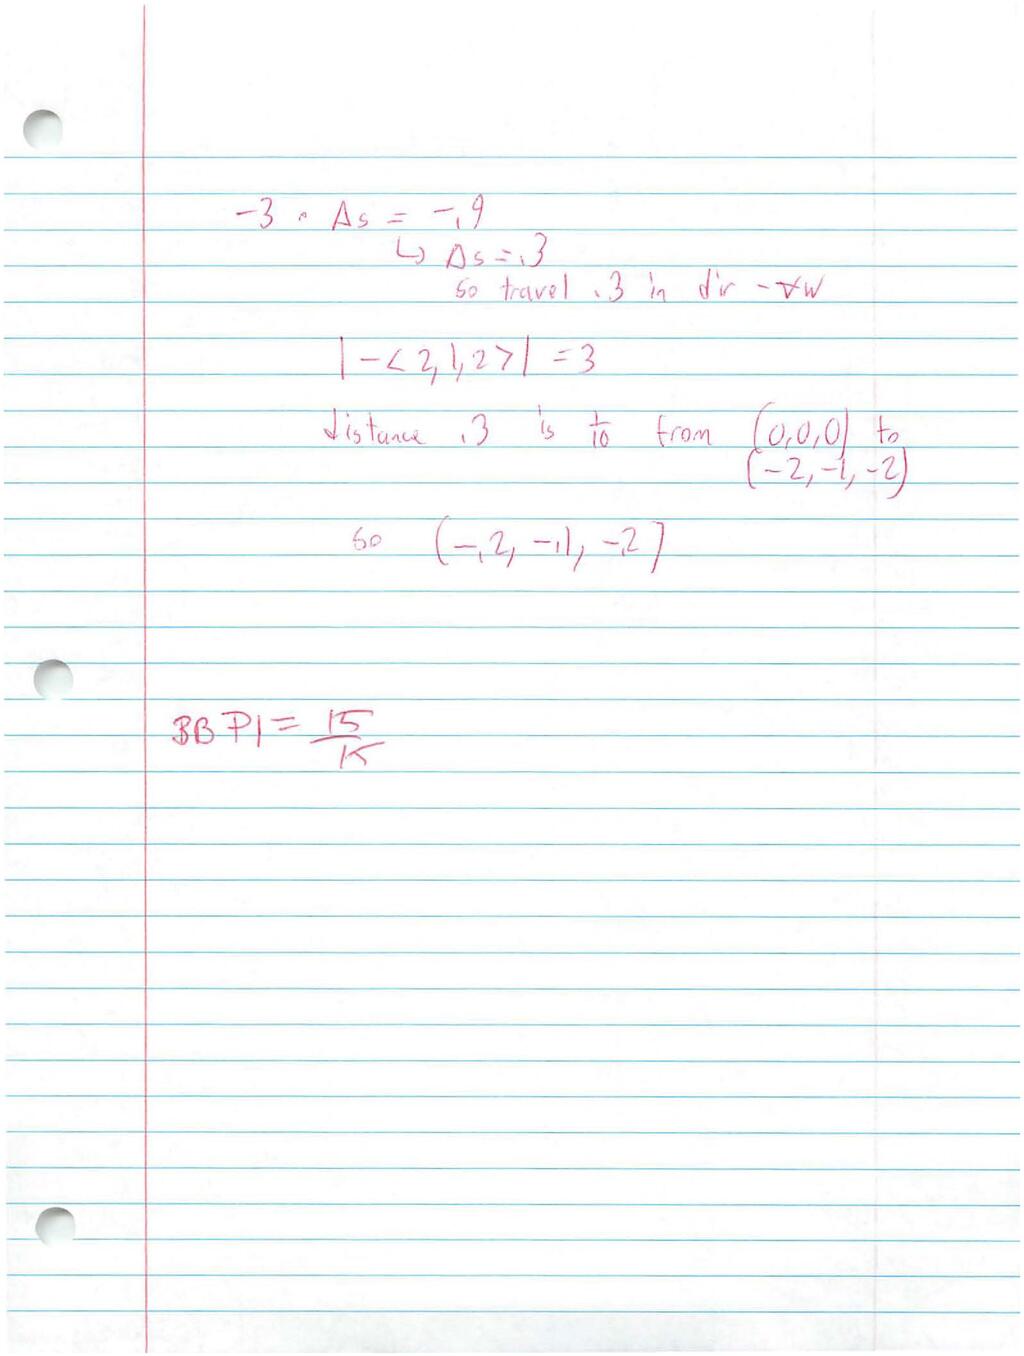 -3 · Δs = -.9
↳ Δs = .3
so travel .3 in dir -∇w
|-<2,1,2>| = 3
distance .3 is 1/10 from (0,0,0) to
(-2,-1,-2)
so (-.2, -.1, -.2)
BB P1 = 15/15